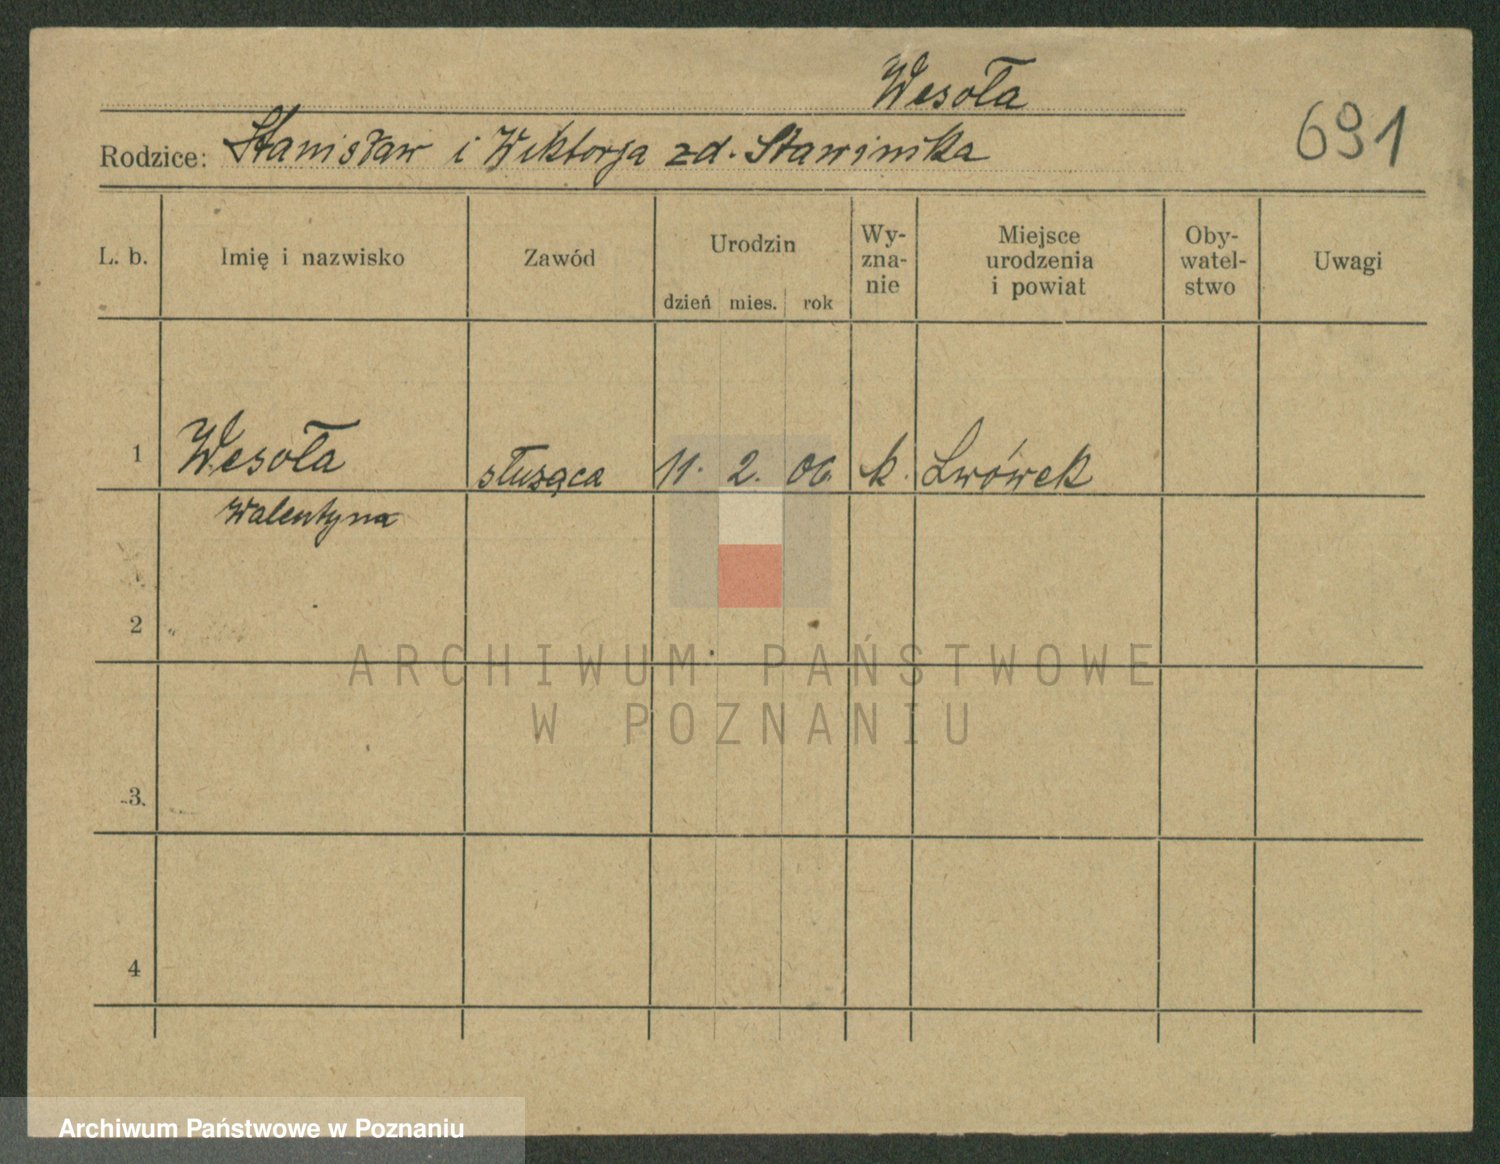 Wesoła
Rodzice: Stanisław i Wiktorja zd. Stawinska
691
L. b.
Imię i nazwisko
Zawód
Urodzin
dzień mies. rok
Wy-
zna-
nie
Miejsce
urodzenia
i powiat
Oby-
watel-
stwo
Uwagi
1 Wesoła służąca 11. 2. 06 k. Lwówek
Walentyna
2
3.
4
ARCHIWUM PAŃSTWOWE
W POZNANIU
Archiwum Państwowe w Poznaniu